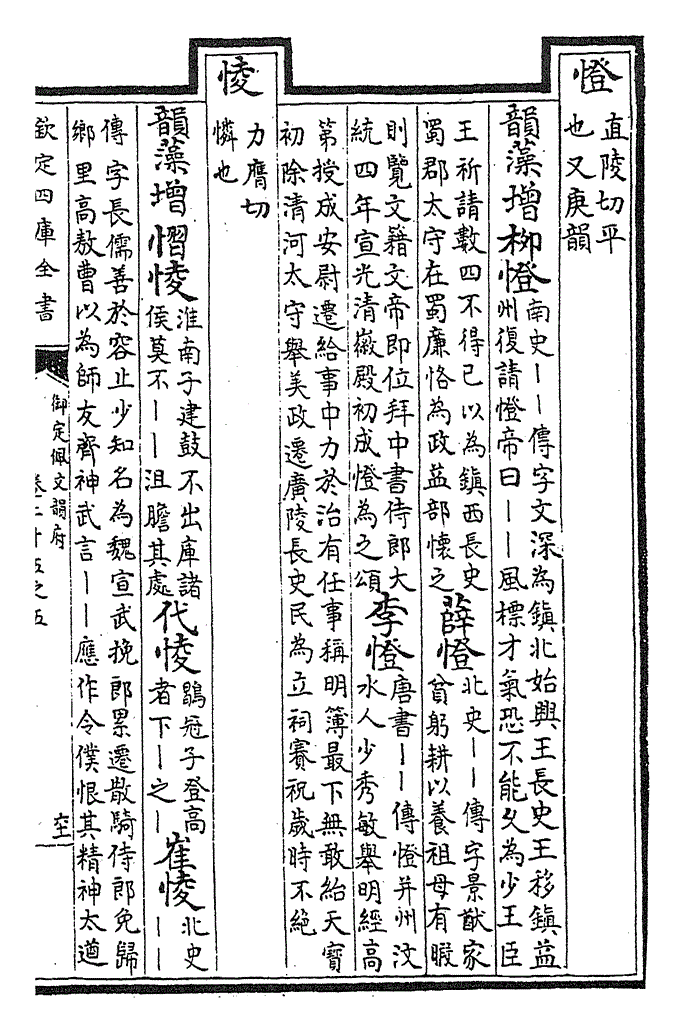 憕
直陵切平
也又庚韻
韻藻增柳憕
南史丨丨傳字文深為鎮北始興王長史王移鎮益
州復請憕帝曰丨丨風標才氣恐不能乆為少王臣
王祈請數四不得已以為鎮西長史
蜀郡太守在蜀廉恪為政益部懷之
薛憕
北史丨丨傳字景猷家
貧躬耕以養祖母有暇
則覽文籍文帝即位拜中書侍郎大
統四年宣光清徽殿初成憕為之頌
李憕
唐書丨丨傳憕并州汶
水人少秀敏舉明經高
第授成安尉遷給事中力於治有任事稱明簿最下無敢紿天寶
初除清河太守舉美政遷廣陵長史民為立祠賽祝歲時不絶
㥄
力膺切
憐也
韻藻增慴㥄
淮南子建鼓不出庫諸
侯莫不丨丨沮膽其處
代㥄
鶡冠子登高
者下丨之丨
崔㥄
北史
丨丨
傳字長儒善於容止少知名為魏宣武挽郎累遷散騎侍郎免歸
鄉里高敖曹以為師友齊神武言丨丨應作令僕恨其精神太遒
欽定四庫全書
御定佩文韻府
卷二十五之五